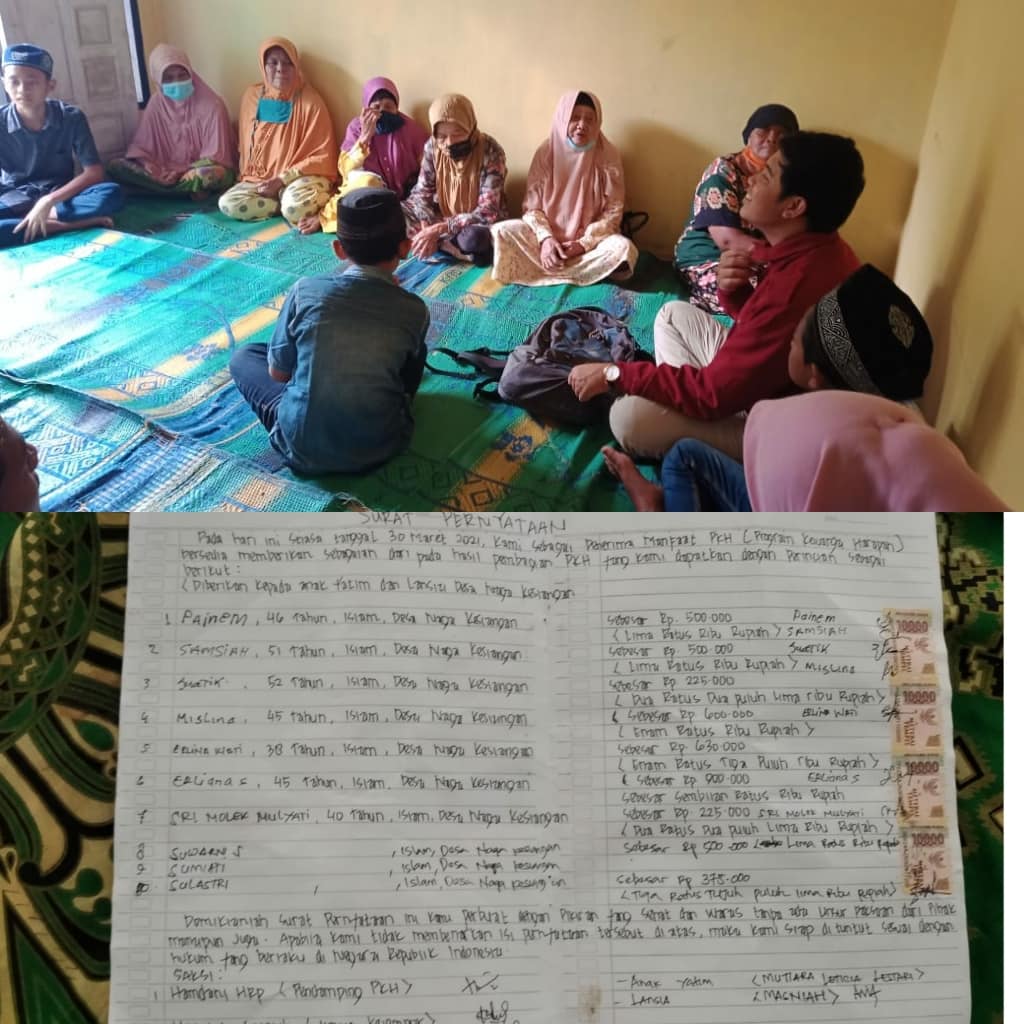 SURAT PERNYATAAN
Pada hari ini Selasa tanggal 30 Maret 2021, Kami Sebagai Penerima Manfaat PKH (Program Keluarga Harapan)
bersedia memberikan sebagaian dari pada hasil pembagian PKH yang kami dapatkan dengan Perincian sebagai
berikut :
(Diberikan kepada anak Yatim dan Lansia Desa Naga Kesiangan
1 PAiNEM, 46 Tahun, Islam, Desa Naga Kesiangan sebesar Rp. 500.000 Painem
( Lima Ratus Ribu Rupiah ) SAMSIAH
2 SAMSIAH, 51 Tahun, Islam, Desa Naga Kesiangan sebesar Rp. 500.000 Suetik
( Lima Ratus Ribu Rupiah ) Mislina
3 Suetik, 52 Tahun, Islam, Desa Naga Kesiangan sebesar Rp 225.000
( Dua Ratus Dua puluh Lima ribu Rupiah )
4 MISLINA, 45 Tahun, Islam, Desa Naga Kesiangan ( Sebesar Rp 600.000 Erlina Wati
( Enam Ratus Ribu Rupiah )
5 ERLINA WATI, 38 Tahun, Islam, Desa Naga Kesiangan sebesar Rp. 630.000
( Enam Ratus Tiga Puluh ribu Rupiah )
6 ERLiana S, 45 Tahun, Islam, Desa Naga Kesiangan ( sebesar Rp 900.000 ERLiana S
sebesar Sembilan Ratus Ribu Rupiah
7 SRI MOLEK MULYATI, 40 Tahun, Islam, Desa Naga Kesiangan sebesar Rp 225.000 SRI MOLEK MULYATI
( Dua Ratus Dua puluh Lima Ribu Rupiah )
8 SUWARNI S , Islam, Desa Naga kesiangan sebesar Rp 500.000 Lima Ratus Ribu Rupiah
9 SUMIATI , Islam, Desa Naga kesiangan
10 SULASTRI , , Islam, Desa Naga kesiangan sebesar Rp 375.000
( Tiga Ratus Tujuh puluh lima Ribu Rupiah )
Demikianlah Surat Pernyataan ini Kami perbuat dengan Pikiran yang sehat dan waras tanpa ada unsur paksaan dari Pihak
manapun Juga. Apabila Kami tidak membenarkan isi pernyataan tersebut di atas, maka kami siap dituntut sesuai dengan
hukum yang berlaku di Negara Republik Indonesia
SAKSI :
1 Hamdani HRP ( Pendamping PKH ) - Anak Yatim ( MUTIARA LETICIA LESTARI )
- LANSIA ( MAGNIAH )
10000
10000
10000
10000